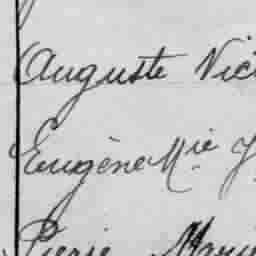 Auguste Vic
Eugène Mie J
Pierre Marie